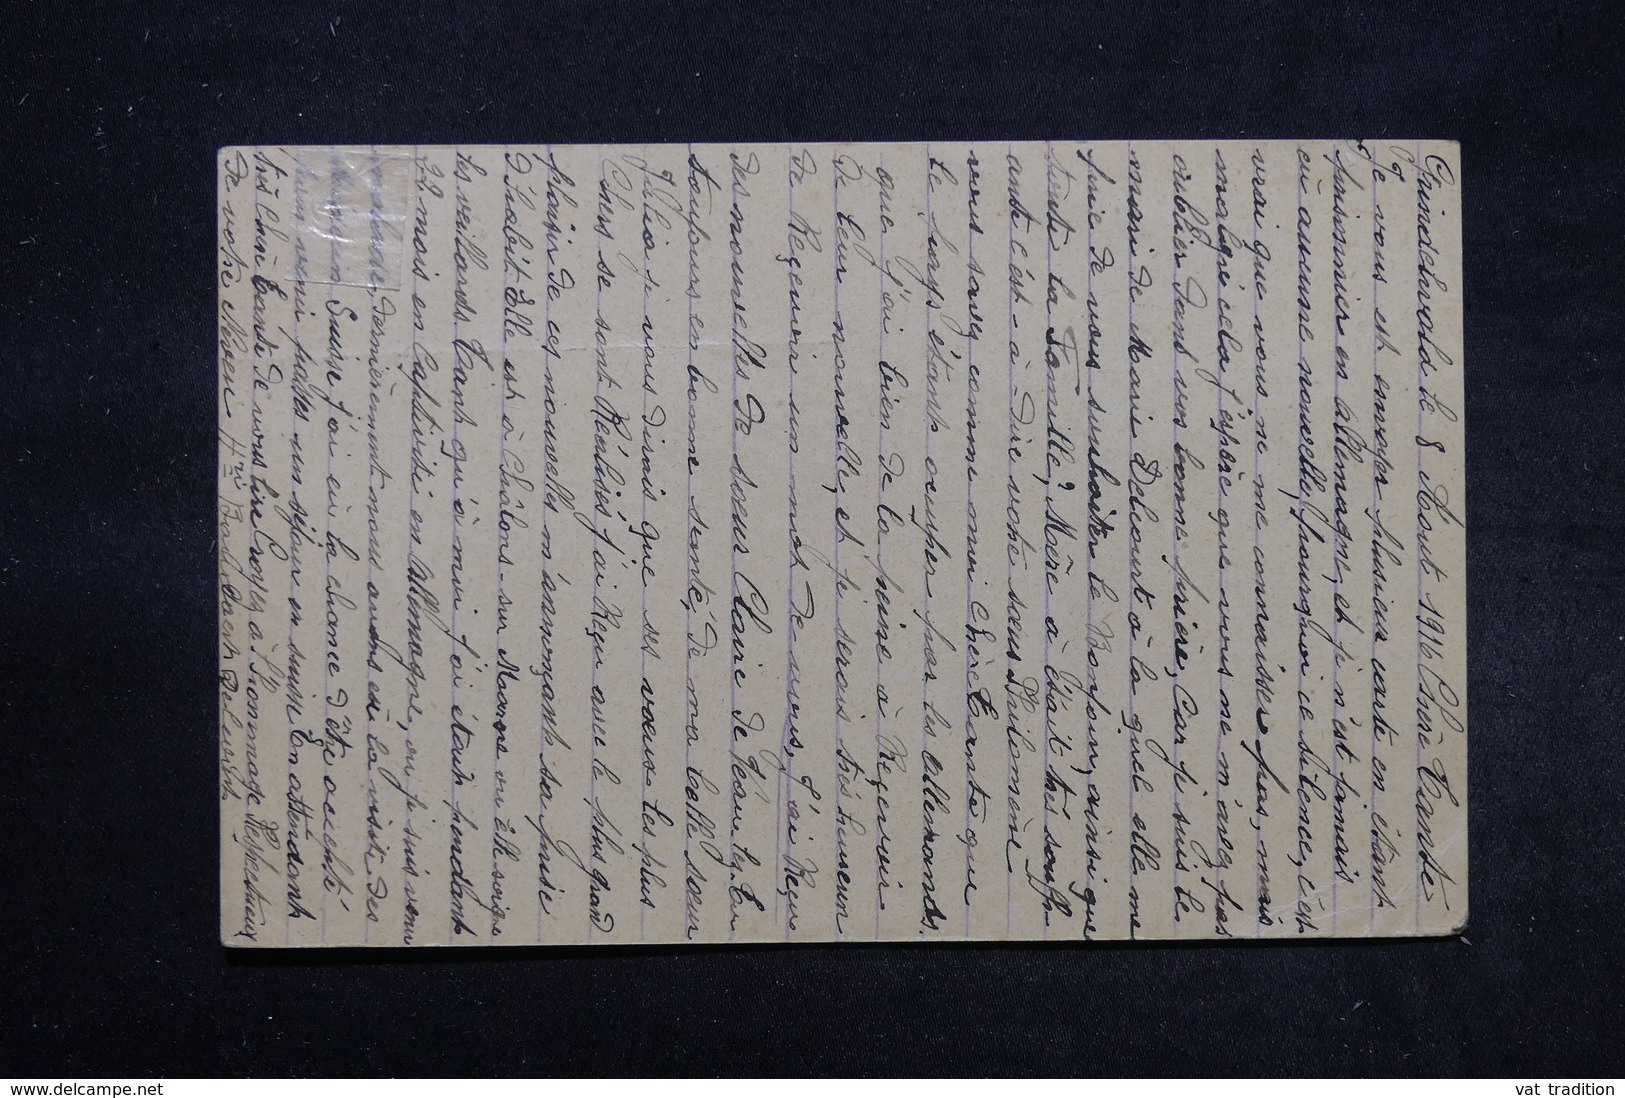 Grindelwald le 8 Aout 1916 Chère Tante
Je vous est envoyer plusieur carte en étant
prisonnier en allemagne, et je n'est jamais
eu aucune nouvelle, pourquoi ce silence, c'est
vrai que vous ne me connaisser pas, mais
malgré cela j'espère que vous ne m'avez pas
oublier dans vos bonne prière, Car je suis le
mari de Marie Delcourt à la quel elle me
prie de vous souhaiter le Bonjour, ainsi que
toute la Famille, Mère à était très souffr-
ante c'est-à-dire votre sœur Philomène
vous savez comme moi chère Tante que
le pays étant occuper par les allemands.
que j'ai bien de la peine à Reçevoir
De leur nouvelle, et je serais très heureux
de Reçevoir un mot de vous, j'ai Reçu
des nouvelles de sœur Claire de
toujours en bonne santé, de ma belle sœur
Julia je vous dirais que ses vœux les plus
Chers se sont Réalisés j'ai Reçu avec le plus grand
plaisir de ces nouvelles m'annonçant sa prise
d'habit Elle est à Châlons-sur Marne ou Elle soigne
les vieillards Tant qu'à moi j'ai était pendant
22 mois en Captivité en Allemagne, ou je suis venu
malade, dernièrement nous avons eu la visite des
Suisse j'ai eu la chance d'être accepté
venir passer un séjour en suisse En attendant
très Chère Tante de vous lire Croyez à l'hommage Respectueux
De votre Neveu Hri Delcourt
www.delcampe.net
vat tradition